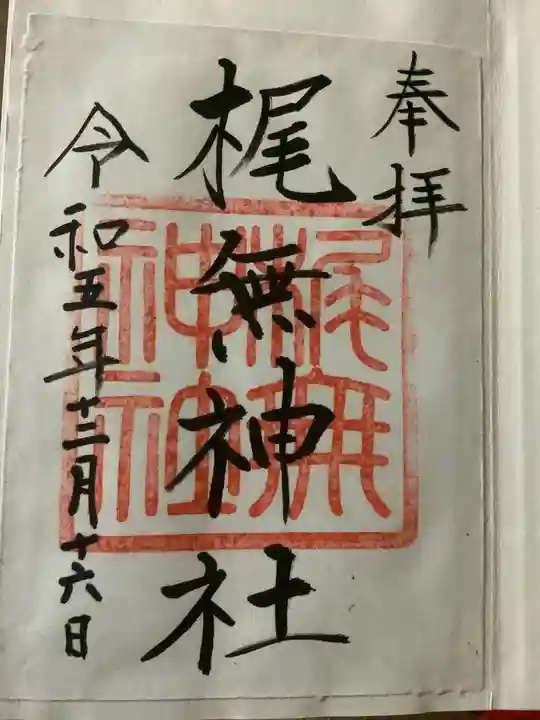 奉拝
梶無神社
令和五年十二月十六日
梶無
神社